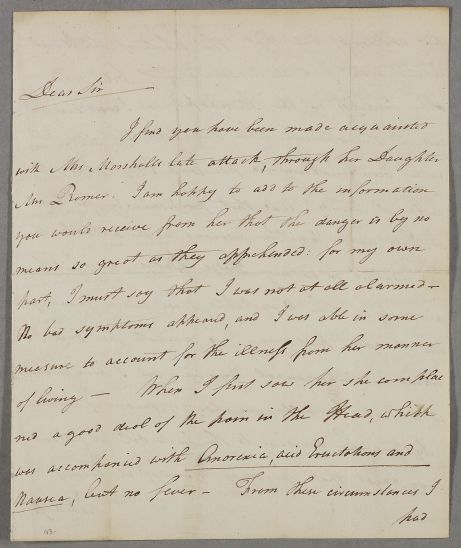 Dear Sir
I find you have been made acquainted
with Mrs Marshalls late attack, through her Daughter
Mrs Romer. I am happy to add to the information
you would receive from her that the danger is by no
means so great as they apprehended: for my own
part, I must say that I was not at all alarmed –
No bad symptoms appeared, and I was able in some
measure to account for the illness from her manner
of living – When I first saw her she complai
ned a good deal of the pain in the Head, which
was accompanied with Anorexia, acid Eructations and
Nausea, but no fever – From these circumstances I
had